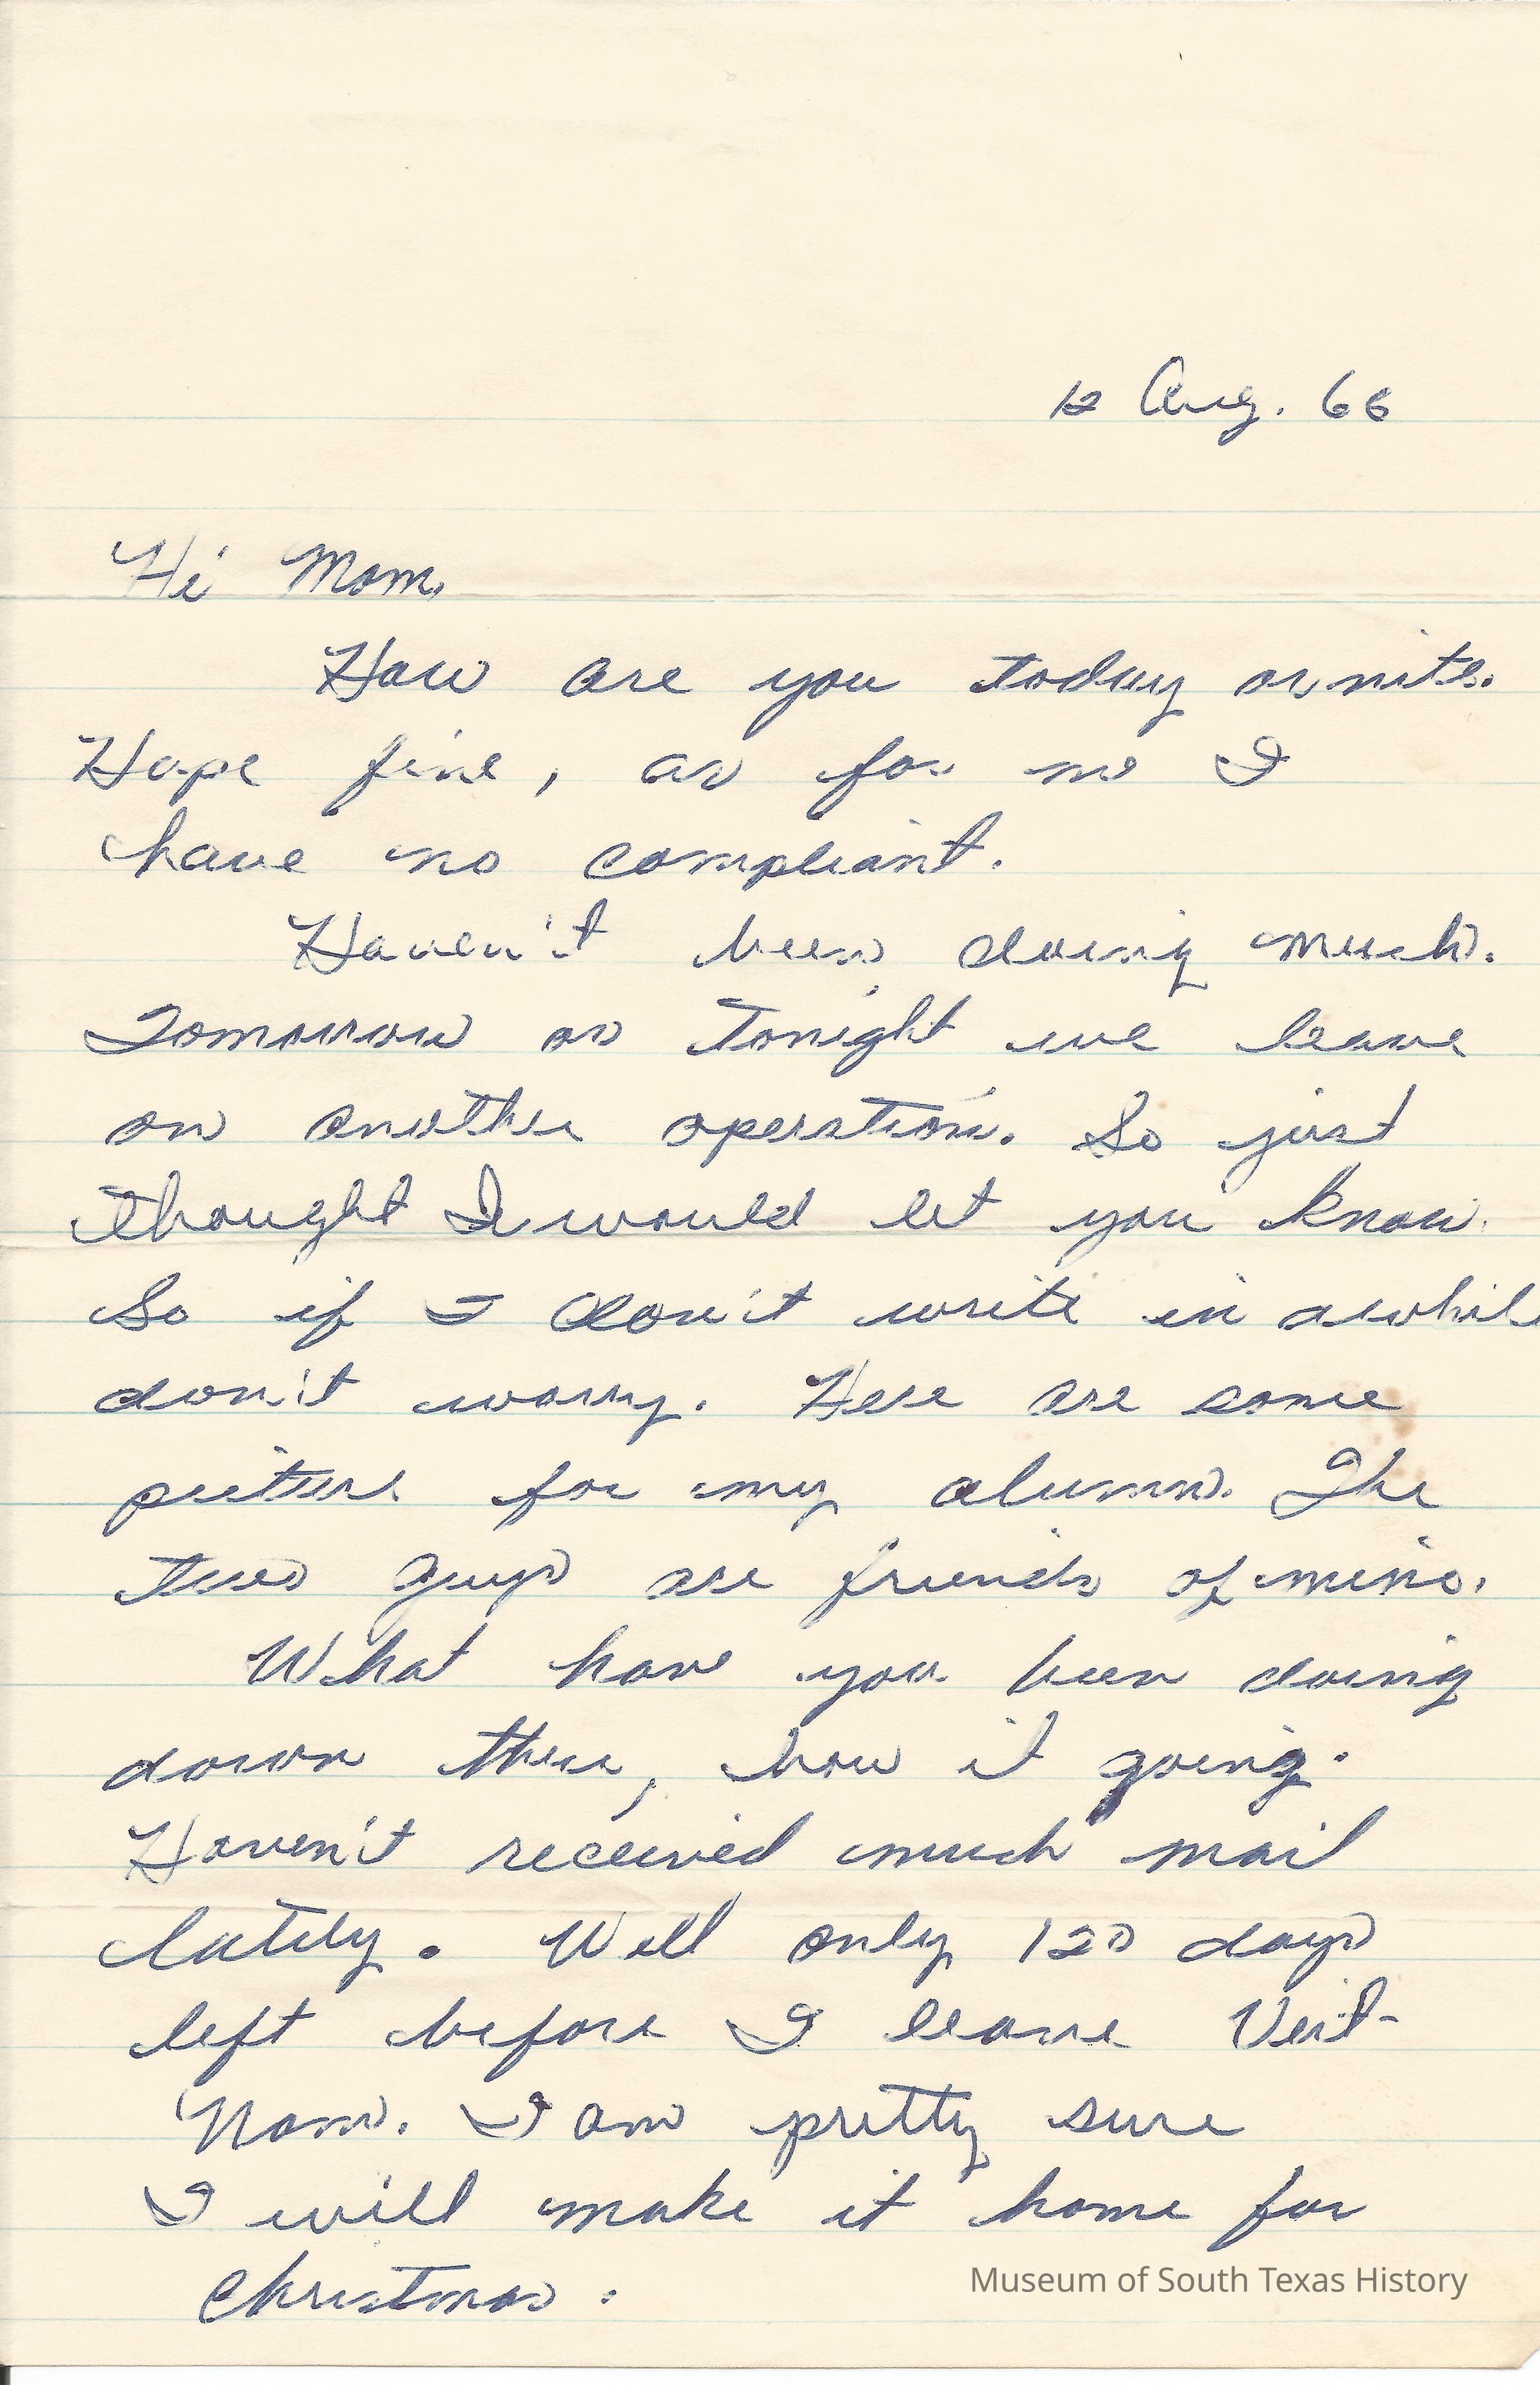 12 Aug. 66
Hi Mom,
How are you today or nite.
Hope fine, as for me I
have no compliant.
Haven't been doing much.
Tomorrow or tonight we leave
on another operation. So just
thought I would let you know.
So if I don't write in awhile
don't worry. Here are some
picture for my alumn. The
two guys are friends of mine.
What have you been doing
down there, how it going.
Haven't received much mail
lately. Well only 120 days
left before I leave Veit-
Nam. I am pretty sure
I will make it home for
Christmas.
Museum of South Texas History